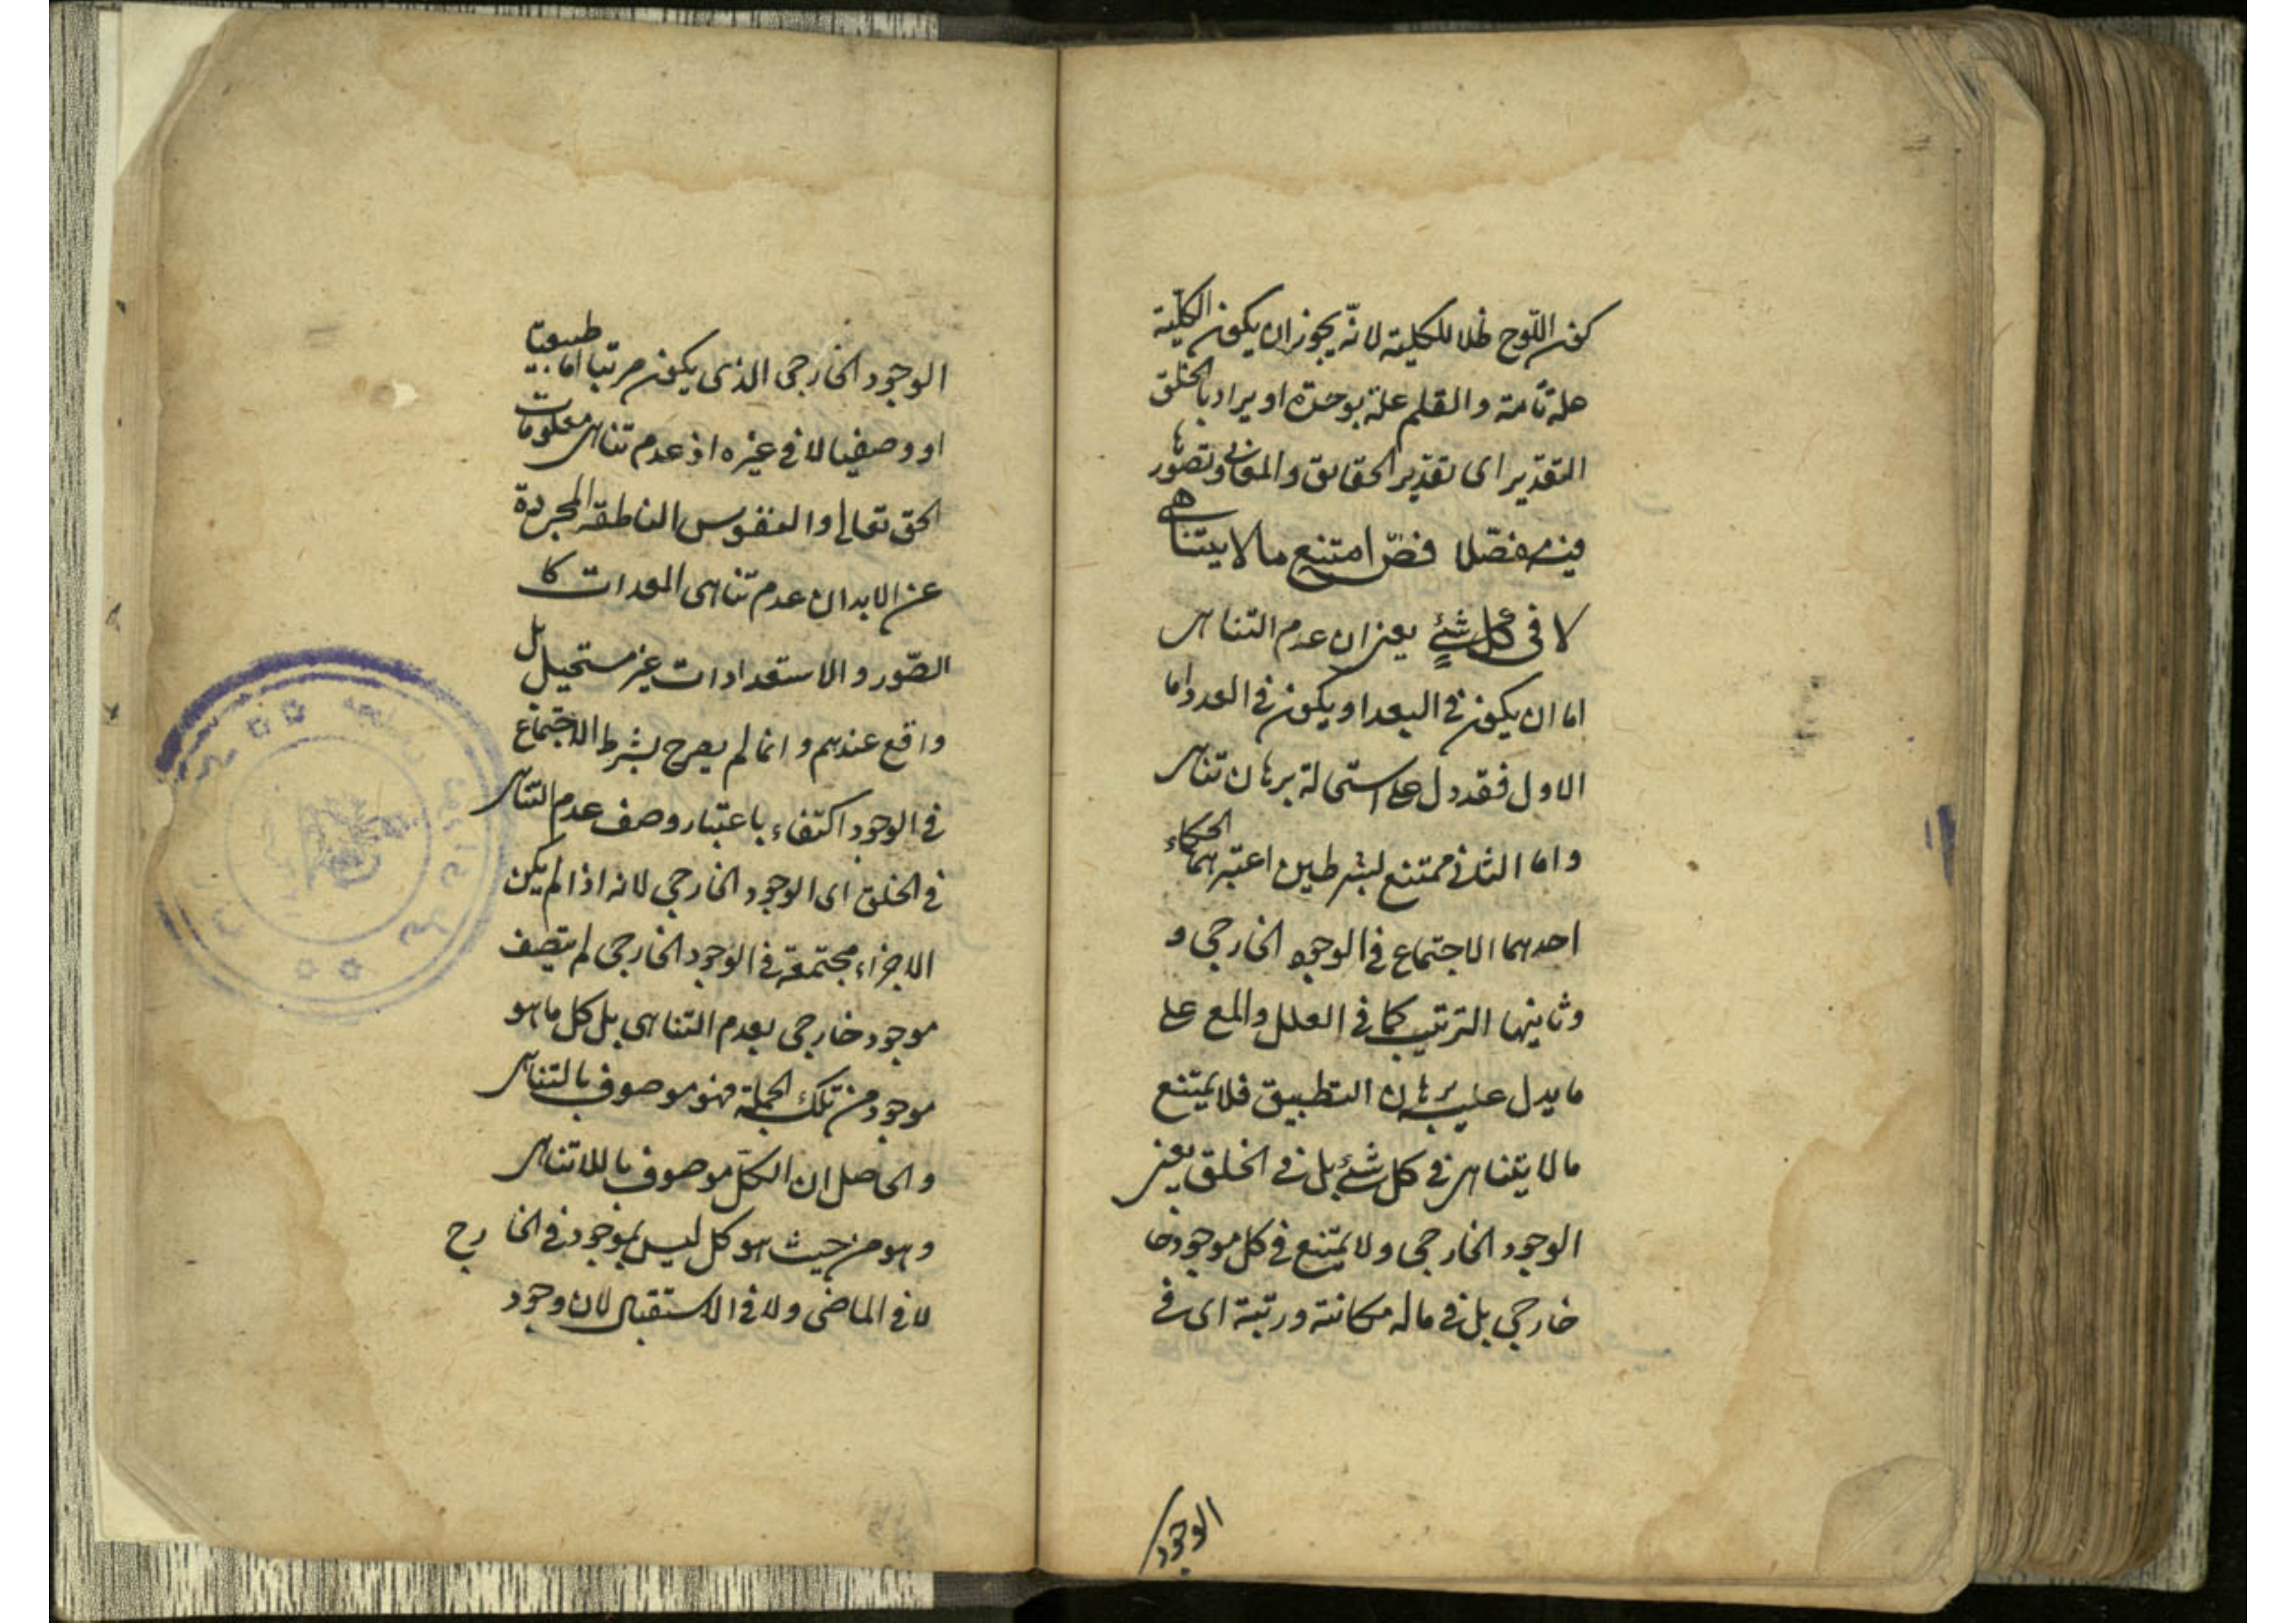 كون اللّوح ظلا للكلية لانّه يجوز ان يكون الكلّية
علة تامة والقلم علة بوحدة او يراد بالخلق
التقدير اى تقدير الحقايق والمعانى وتصورها
فيه مفصّلا فصّ امتنع مالا يتناهى
لا فى كل شئٍ يعنى ان عدم التناهى
اما ان يكون فى البعد او يكون فى العدد واما
الاول فقد دل على استحالة برهان تناهى
واما الثانى فممتنع بشرطين اعتبرهما الحكماء
احدهما الاجتماع فى الوجود الخارجى و
وثانيها الترتيب كما فى العلل والمع على
ما يدل عليه برهان التطبيق فلا يمتنع
مالا يتناهى فى كل شئ بل فى الخلق يعنى
الوجود الخارجى ولا يمتنع فى كل موجود خا
خارجى بل فى ماله مكانة ورتبة اى فى
الوجود
الوجود الخارجى الذى يكون مرتبا اما طبيعيا
او وصفيا لا فى غيره اذ عدم تناهى معلومات
الحق تعالى والنفوس الناطقة المجردة
عن الابدان عدم تناهى المعدات كا
الصّور والاستعدادات غير مستحيل بل
واقع عندهم وانما لم يصرح بشرط الاجتماع
فى الوجود اكتفاء باعتبار وصف عدم التناهى
فى الخلق اى الوجود الخارجى لانه اذا لم يكن
الاجزاء مجتمعة فى الوجود الخارجى لم يتصف
موجود خارجى بعدم التناهى بل كل ما هو
موجود من تلك الجملة فهو موصوف بالتناهى
والحاصل ان الكلّ موصوف باللاتناهى
وهو من حيث هو كل ليس بموجود فى الخا رج
لا فى الماضى ولا فى الاستقبال لان وجود